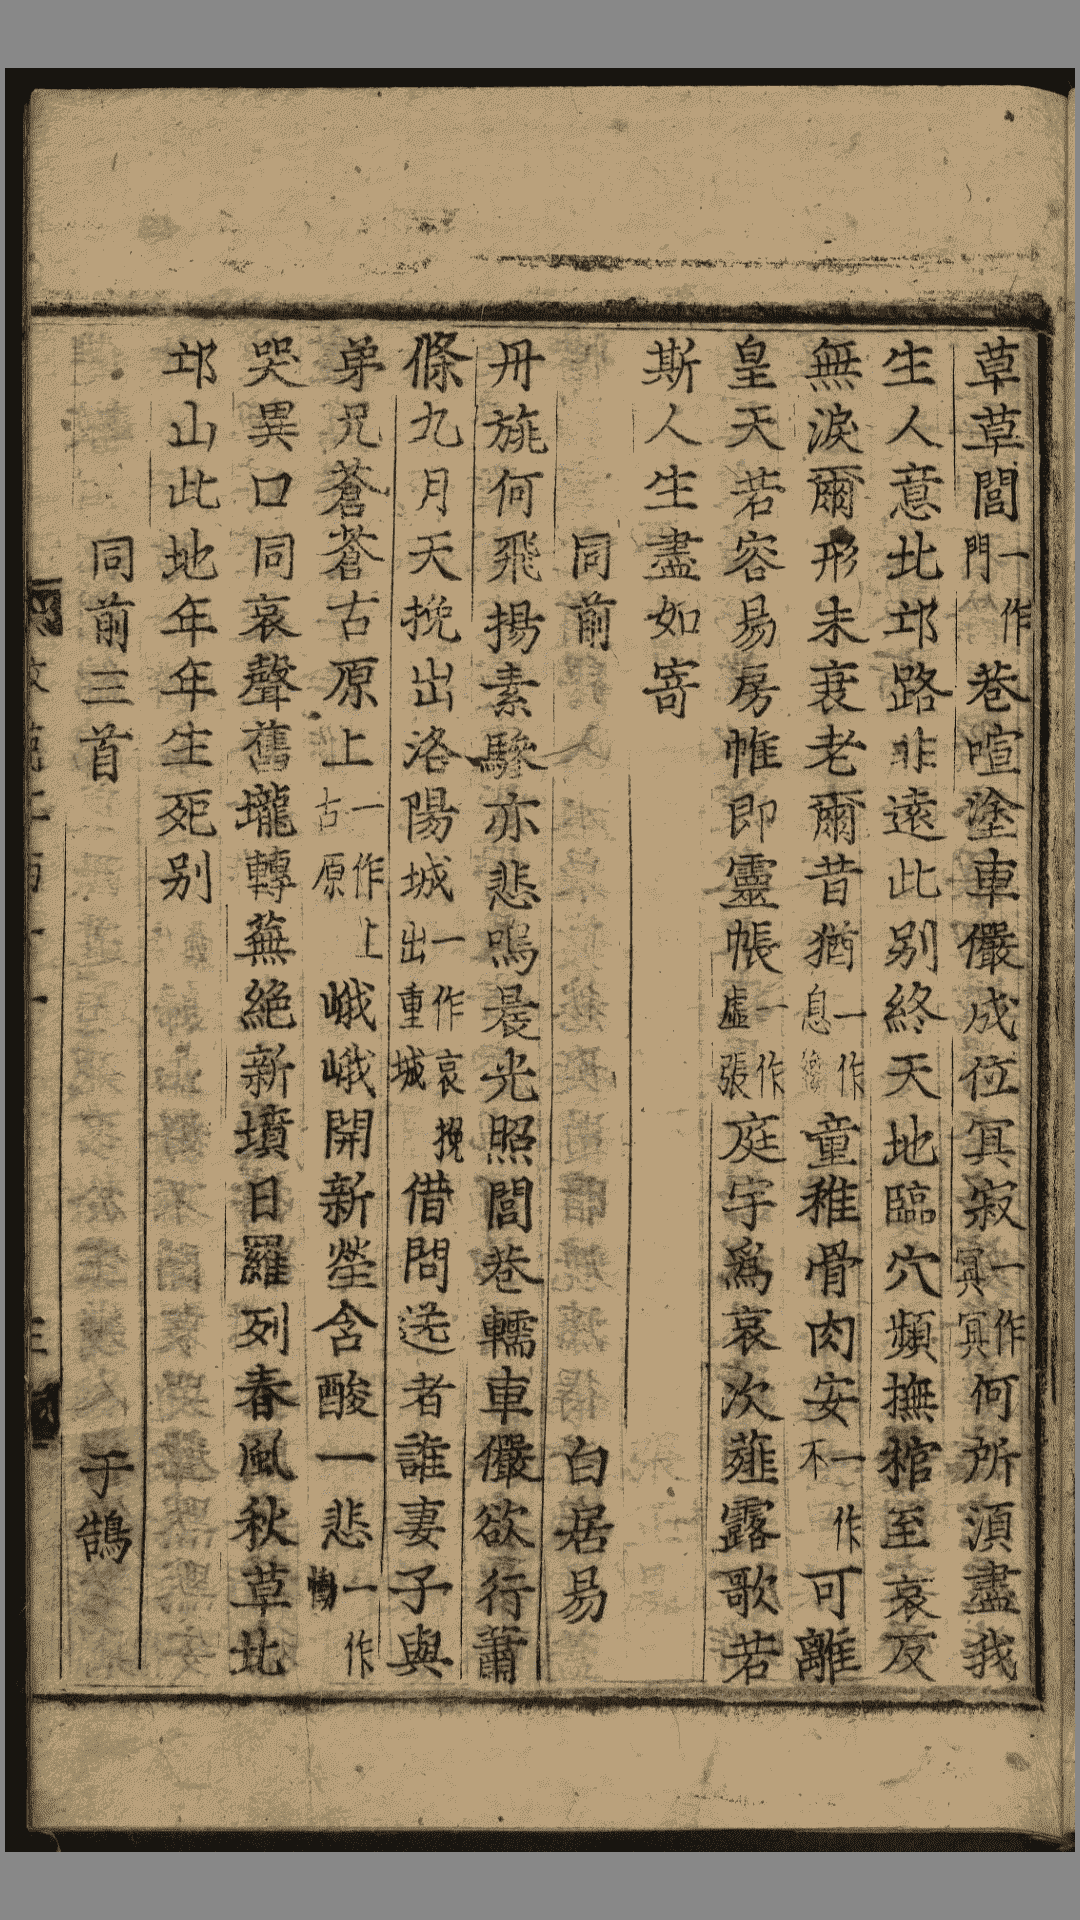 草草閭一作門巷喧塗車儼成位冥寂一作冥冥何所湏盡我
生人意北邙路非遠此别終天地臨穴頻撫棺至哀反
無淚爾形未衰老爾昔猶一作息童稚骨肉安一作不可離
皇天若容易房帷即靈帳一作虛張庭宇爲哀次薤露歌若
斯人生盡如寄
同前 白居易
丹旐何飛揚素驂亦悲鳴晨光照閭巷轜車儼欲行蕭
條九月天挽出洛陽城一作哀挽出重城借問送者誰妻子與
弟兄蒼蒼古原上一作上古原峨峨開新塋含酸一一作慟悲
哭異口同哀聲舊壠轉蕪絕新墳日羅列春風秋草北
邙山此地年年生死别
同前三首 于鵠